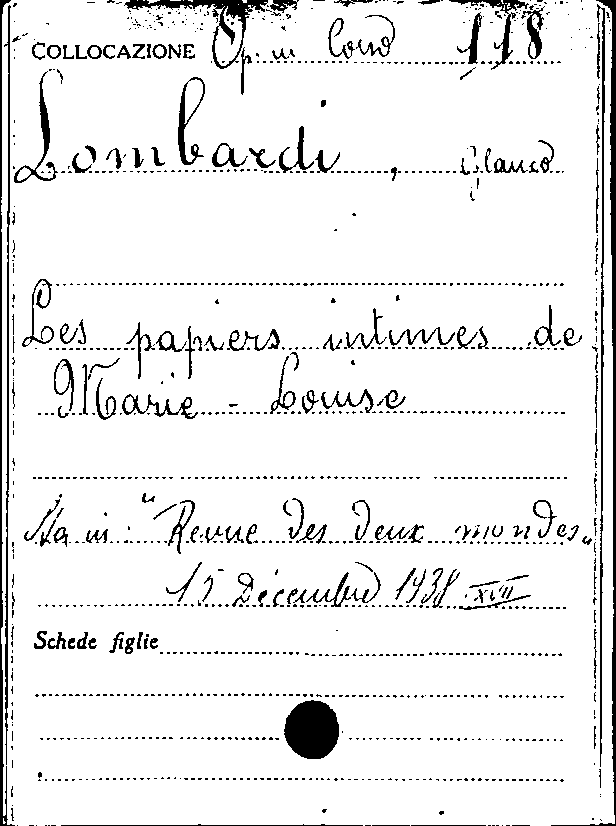 COLLOCAZIONE Op. in Corso 118
Lombardi, Glauco
Les papiers intimes de
Marie-Louise
Sta in: "Revue des deux mondes"
15 Décembre 1938 XVII
Schede figlie